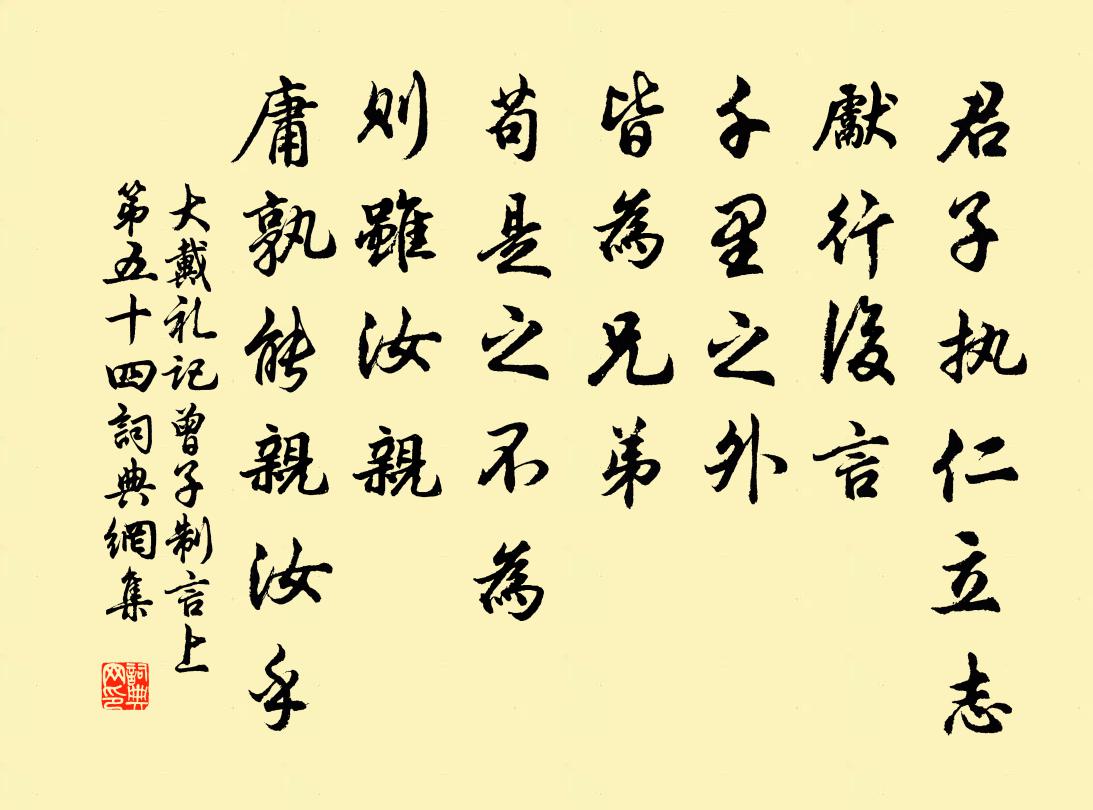 君子执仁立志
獻行後言
千里之外
皆為兄弟
苟是之不為
則雖汝親
庸孰能親汝乎
大戴礼记曾子制言上
第五十四詞典網集
詞典網印